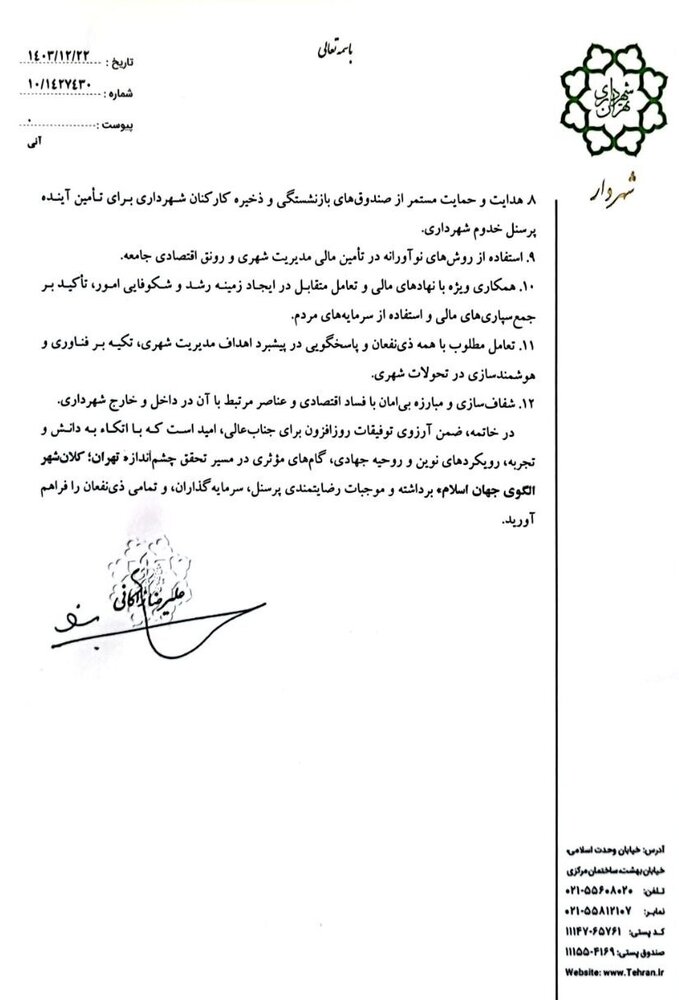 باسمه تعالی
تاریخ : ۱۴۰۳/۱۲/۲۲
شماره : ۱۰/۱۴۲۷۴۳۰
پیوست : ۰
آنی
شهرداری تهران
شهردار
۸. هدایت و حمایت مستمر از صندوق‌های بازنشستگی و ذخیره کارکنان شهرداری برای تأمین آینده
پرسنل خدوم شهرداری.
۹. استفاده از روش‌های نوآورانه در تأمین مالی مدیریت شهری و رونق اقتصادی جامعه.
۱۰. همکاری ویژه با نهادهای مالی و تعامل متقابل در ایجاد زمینه رشد و شکوفایی امور، تأکید بر
جمع‌سپاری‌های مالی و استفاده از سرمایه‌های مردم.
۱۱. تعامل مطلوب با همه ذی‌نفعان و پاسخگویی در پیشبرد اهداف مدیریت شهری، تکیه بر فناوری و
هوشمندسازی در تحولات شهری.
۱۲. شفاف‌سازی و مبارزه بی‌امان با فساد اقتصادی و عناصر مرتبط با آن در داخل و خارج شهرداری.
در خاتمه، ضمن آرزوی توفیقات روزافزون برای جناب‌عالی، امید است که با اتکاء به دانش و
تجربه، رویکردهای نوین و روحیه جهادی، گام‌های مؤثری در مسیر تحقق چشم‌انداز« تهران؛ کلان‌شهر
الگوی جهان اسلام» برداشته و موجبات رضایتمندی پرسنل، سرمایه‌گذاران، و تمامی ذی‌نفعان را فراهم
آورید.
علیرضا زاکانی
آدرس: خیابان وحدت اسلامی،
خیابان بهشت، ساختمان مرکزی
تلفن: ۰۲۱-۵۵۶۰۸۰۲۰
نمابر: ۰۲۱-۵۵۸۱۲۱۰۷
کد پستی: ۱۱۱۴۷-۶۵۷۶۱
صندوق پستی: ۱۱۱۵۵-۴۱۶۹
Website: www.Tehran.ir